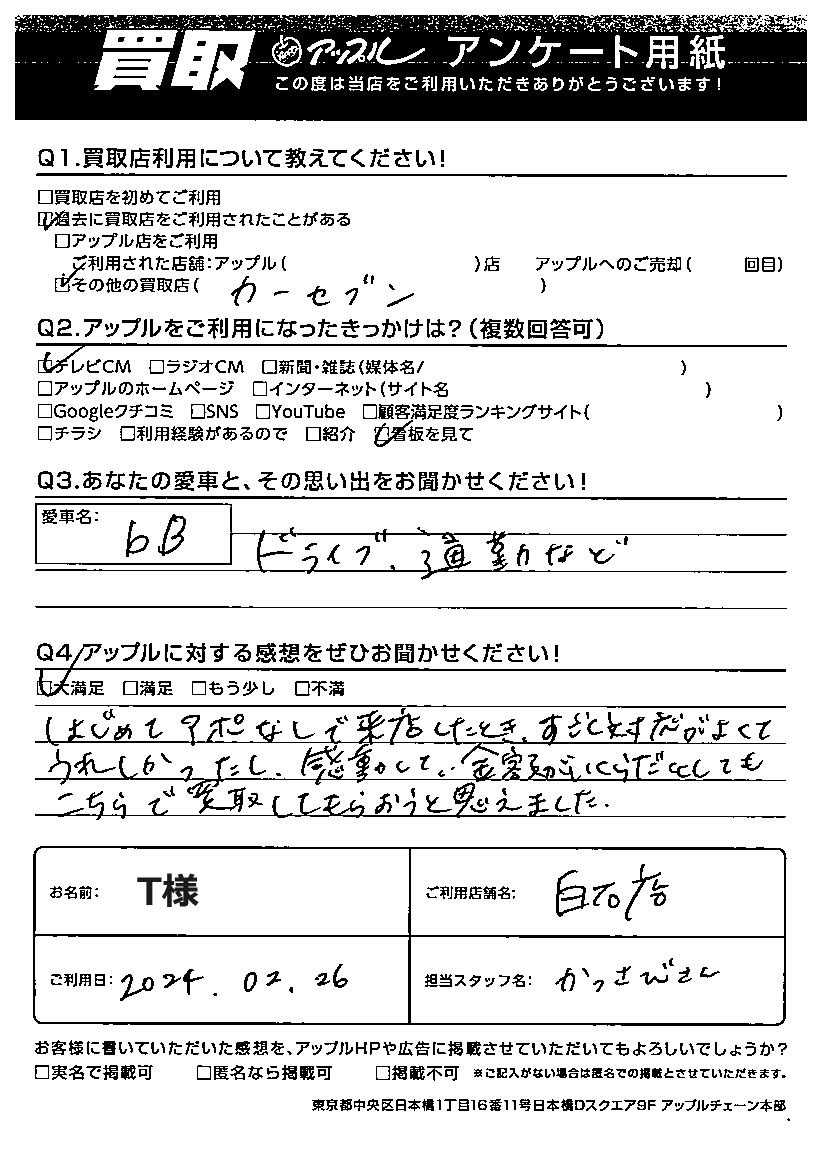 買取 アップル アンケート用紙
この度は当店をご利用いただきありがとうございます！
Q1.買取店利用について教えてください！
□買取店を初めてご利用
☑過去に買取店をご利用されたことがある
□アップル店をご利用
ご利用された店舗：アップル（ ）店 アップルへのご売却（ 回目）
☑その他の買取店（ カーセブン ）
Q2.アップルをご利用になったきっかけは？（複数回答可）
☑テレビCM □ラジオCM □新聞・雑誌（媒体名/ ）
□アップルのホームページ □インターネット（サイト名 ）
□Googleクチコミ □SNS □YouTube □顧客満足度ランキングサイト（ ）
□チラシ □利用経験があるので □紹介 ☑看板を見て
Q3.あなたの愛車と、その思い出をお聞かせください！
愛車名： bB ドライブ、通勤など
Q4.アップルに対する感想をぜひお聞かせください！
☑大満足 □満足 □もう少し □不満
はじめてアポなしで来店したとき、すごく対応がよくて
うれしかったし、感動して、金額が
こちらで買取してもらおうと思えました.
お名前： T様 ご利用店舗名： 白石店
ご利用日： 2024.02.26 担当スタッフ名： かっさびさん
お客様に書いていただいた感想を、アップルHPや広告に掲載させていただいてもよろしいでしょうか？
□実名で掲載可 □匿名なら掲載可 □掲載不可 ※ご記入がない場合は匿名での掲載とさせていただきます。
東京都中央区日本橋1丁目16番11号日本橋Dスクエア9F アップルチェーン本部